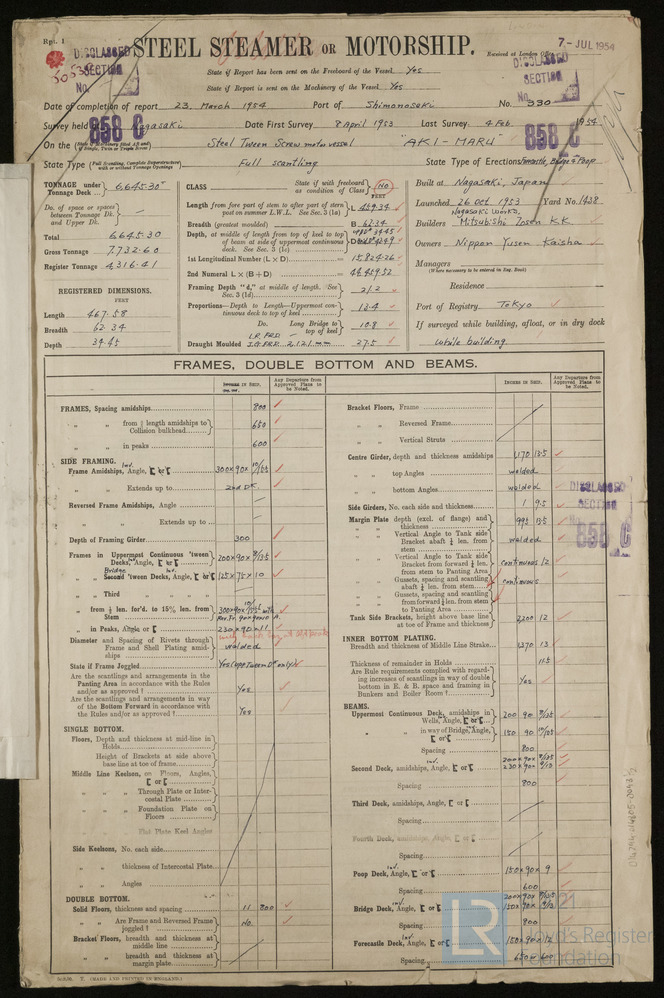 Rpt. 1
7 - JUL 1954
STEEL STEAMER OR MOTORSHIP.
Received at London Office
DISCLASSED
SECTION
No.
858 C
DISCLASSED
SECTION
No.
858 C
State if Report has been sent on the Freeboard of the Vessel Yes
State if Report is sent on the Machinery of the Vessel Yes
Date of completion of report 23. March 1954 Port of Shimonoseki No. 330
Survey held at Nagasaki Date First Survey 8 April 1953 Last Survey 4 Feb. 1954
On the (State if Machinery fitted Aft and if Single, Twin or Triple Screw) Steel Tween Screw motor vessel "AKI - MARU"
State Type (Full Scantling, Complete Superstructure with or without Tonnage Openings) Full scantling State Type of Erections Forecastle, Bridge & Poop
TONNAGE under Tonnage Deck ... 6,645.30
Do. of space or spaces between Tonnage Dk. and Upper Dk.
Total 6645.30
Gross Tonnage 7,732.60
Register Tonnage 4,316.41
REGISTERED DIMENSIONS.
FEET
Length 467.58
Breadth 62.34
Depth 39.45
CLASS State if with freeboard as condition of Class NO
Length from fore part of stem to after part of stern post on summer L.W.L. See Sec. 3 (1a) L 459.34
Breadth (greatest moulded) B 62.34
Depth, at middle of length from top of keel to top of beam at side of uppermost continuous deck. See Sec. 3 (1c)
1st Longitudinal Number (L × D) = 15,824.26
2nd Numeral L × (B + D) = 44,459.52
Framing Depth "d," at middle of length. See Sec. 3 (1d) 21.2
Proportions—Depth to Length—Uppermost continuous deck to top of keel 13.4
Do. Long Bridge to top of keel 10.8
Draught Moulded 27.5
Built at Nagasaki, Japan
Launched 26 Oct 1953 Yard No. 1438
Nagasaki works.
Builders Mitsubishi Zosen K K
Owners Nippon Yusen Kaisha
Managers
(Where necessary to be entered in Reg. Book)
Residence
Port of Registry Tokyo
If surveyed while building, afloat, or in dry dock
while building
FRAMES, DOUBLE BOTTOM AND BEAMS.
INCHES IN SHIP.
Any Departure from Approved Plans to be Noted.
FRAMES, Spacing amidships 800
" " from ⅕ length amidships to Collision bulkhead 650
" " in peaks 600
SIDE FRAMING.
Frame Amidships, Angle, [ or [
" " Extends up to 2nd DK.
Reversed Frame Amidships, Angle
" " Extends up to
Depth of Framing Girder 300
Frames in Uppermost Continuous 'tween Decks, Angle, [ or [
" " Second 'tween Decks, Angle, [ or [ 125 × 75 × 10
" " Third
" " from ⅕ len. for'd. to 15% len. from Stem
" " in Peaks, Angle or [ 230 × 90 × 11
Diameter and Spacing of Rivets through Frame and Shell Plating amidships welded
State if Frame Joggled Yes (upp Tween Dk only)
Are the scantlings and arrangements in the Panting Area in accordance with the Rules and/or as approved? Yes
Are the scantlings and arrangements in way of the Bottom Forward in accordance with the Rules and/or as approved? Yes
SINGLE BOTTOM.
Floors, Depth and thickness at mid-line in Holds
Height of Brackets at side above base line at toe of frame
Middle Line Keelson, on Floors, Angles, [ or [
" " Through Plate or Intercostal Plate
" " Foundation Plate on Floors
Flat Plate Keel Angles
Side Keelsons, No. each side
" " thickness of Intercostal Plate
" " Angles
DOUBLE BOTTOM.
Solid Floors, thickness and spacing 11 800
" " Are Frame and Reversed Frame joggled? No.
Bracket Floors, breadth and thickness at middle line
" " breadth and thickness at margin plate
INCHES IN SHIP.
Any Departure from Approved Plans to be Noted.
Bracket Floors, Frame
" " Reversed Frame
" " Vertical Struts
Centre Girder, depth and thickness amidships 1170 13.5
" " top Angles welded
" " bottom Angles welded
Side Girders, No. each side and thickness 1 9.5
Margin Plate depth (excl. of flange) and thickness 995 13.5
" " Vertical Angle to Tank side Bracket abaft ¼ len. from stem welded
" " Vertical Angle to Tank side Bracket from forward ¼ len. from stem to Panting Area continuous 12
" " Gussets, spacing and scantling abaft ¼ len. from stem continuous
" " Gussets, spacing and scantling from forward ¼ len. from stem to Panting Area
Tank Side Brackets, height above base line at toe of Frame and thickness 2200 12
INNER BOTTOM PLATING.
Breadth and thickness of Middle Line Strake 1370 13
Thickness of remainder in Holds 11.5
Are Rule requirements complied with regarding increases of scantlings in way of double bottom in E. & B. space and framing in Bunkers and Boiler Room? Yes
BEAMS.
Uppermost Continuous Deck, amidships in Wells, Angle, [ or [
" " in way of Bridge, Angle, [ or [
Spacing 800
Second Deck, amidships, Angle, [ or [
Spacing 800
Third Deck, amidships, Angle, [ or [
Spacing
Fourth Deck, amidships, Angle, [ or [
Spacing
Poop Deck, Angle, [ or [ 150 × 90 × 9
Spacing 600
Bridge Deck, Angle, [ or [
Spacing 800
Forecastle Deck, Angle, [ or [ 150 × 90 × 12
Spacing 650 & 600
DISCLASSED
SECTION
858 C
LR
Lloyd's Register
Foundation